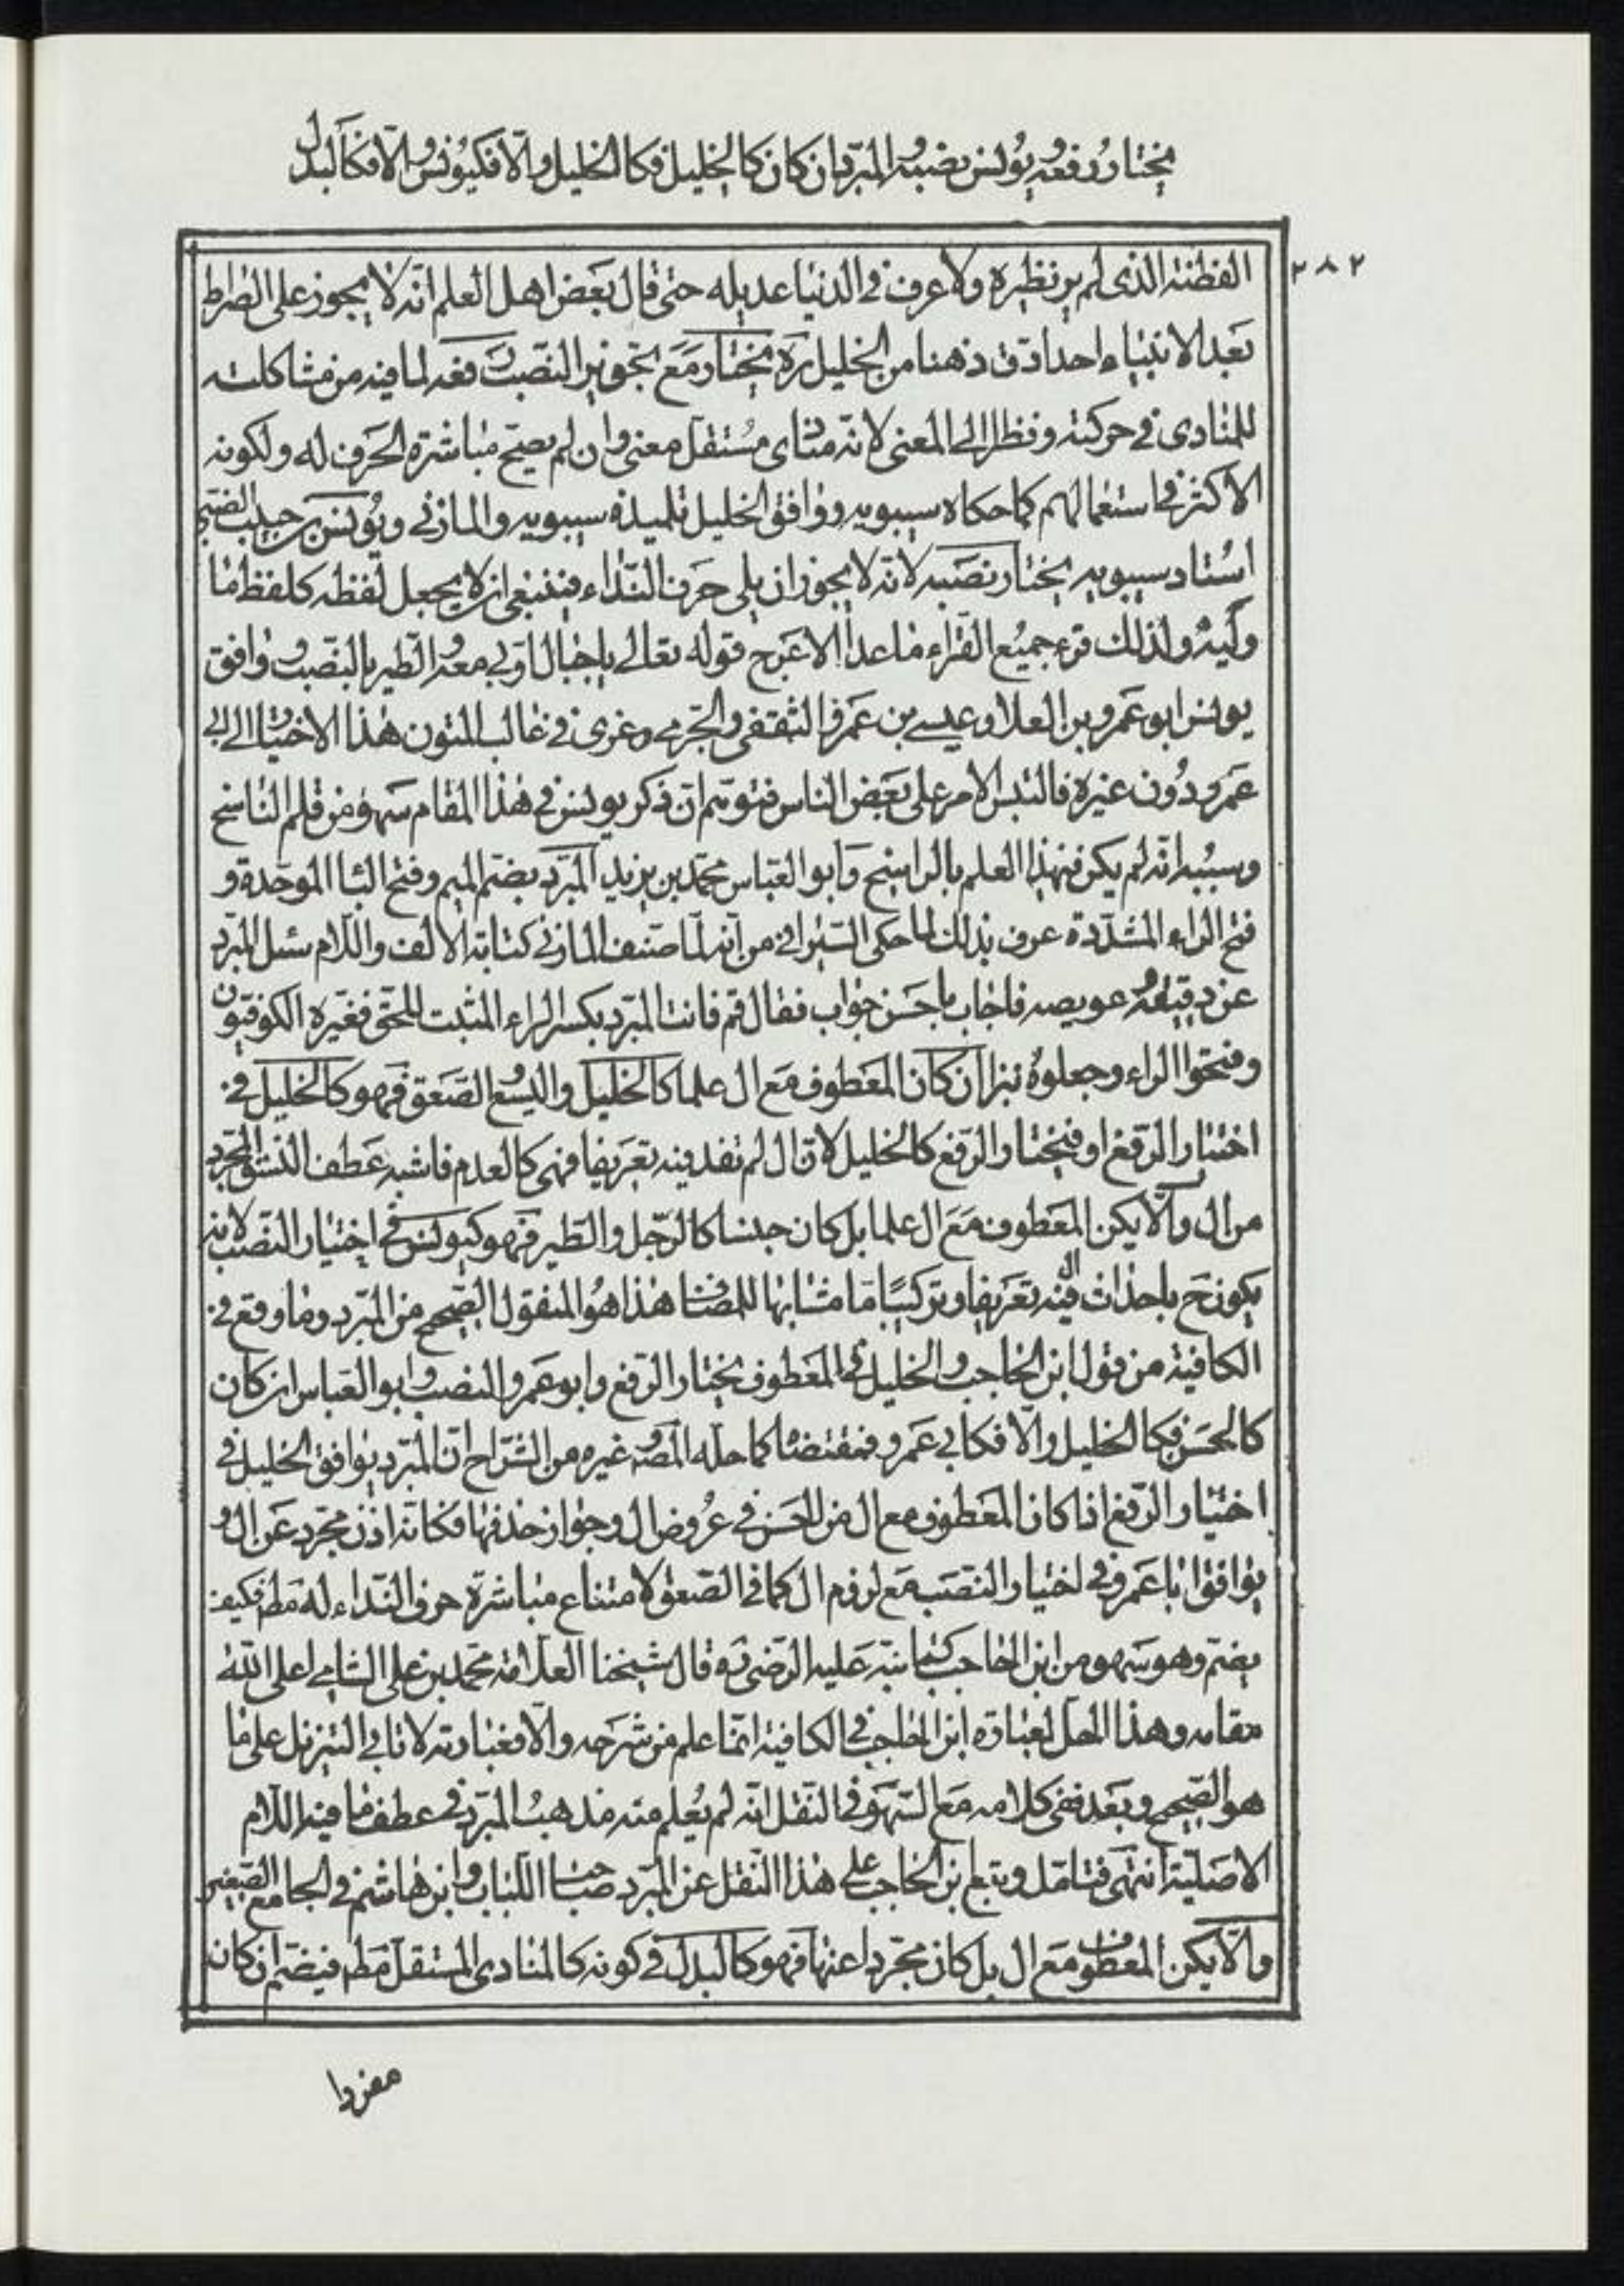 يختار رفعه ويونس نصبه والمبرد ان كان كالخليل فكالخليل والّا فكيونس والّا فكالبدل
٢٨٢
الفطنه الذى لم ير نظيره ولا عرف فى الدنيا عديله حتى قال بعض اهل العلم انّه لا يجوز على الصراط
بعد الانبياء احد ادق ذهنا من الخليل ره يختار مع تجويز النّصب رفعه لما فيه من مشاكلته
للمنادى فى حركته ونظرا الى المعنى لانّه منادى مُستقل معنى وان لم يصحّ مباشرة الحرف له ولكونه
الاكثر فى استعمالهم كما حكاه سيبويه ووافق الخليل تلميذه سيبويه والمازنى ويُونس بن حبيب الضبى
استاد سيبويه يختار نصبه لانّه لا يجوز ان يلى حرف النّداء فينبغى ان لا يجعل لفظه كلفظ ما
وليه ولذلك قرء جميع القرّاء ما عدا الاعرج قوله تعالى يا جبال اوّبى معه والطير بالنّصب ووافق
يونس ابو عمرو بن العلا وعيسى بن عمرو الثقفى والجّرمى وعزى فى غالب المتون هذا الاختيار الى ابى
عمرو دُون غيره فالتبس الامر على بعض الناس فتوهّم انّ ذكر يونس فى هذا المقام سهو من قلم الناسخ
وسببه انّه لم يكن فى هذا العلم بالراسخ وابو العباس محمّد بن يزيد المبرّد بضم الميم وفتح البا الموحدة و
فتح الراء المشدّدة عرف بذلك لما حكى السّيرافى من انه لمّا صنف المازنى كتابه الالف واللّام سئل المبرّد
عن دقيقه وعويصه فاجاب باحسن جواب فقال قم فانت المبرّد بكسر الراء المثبت للحق فغيّره الكوفيّون
وفتحوا الراء وجعلوهُ نبزا ان كان المعطوف مع ال علما كالخليل واليسع والصّعق فهو كالخليل فى
اختيار الرّفع او فيختار الرّفع كالخليل لانّ ال لم تفد فيه تعريفا فهى كالعدم فاشبه عطف النسق المجرّد
من ال والّا يكن المعطوف مع ال علما بل كان جنسا كالرّجل والطّير فهو كيونس فى اختيار النّصب لانه
يكون ح باحداث ال فيه تعريفا وتركيبًا ما مشابها للمضاف هذا هو المنقول الصّحيح من المبرّد وما وقع فى
الكافيّة من قول ابن الحاجب والخليل فى المعطوف يختار الرّفع وابو عمرو النصب وابو العباس ان كان
كالحسن فكالخليل والّا فكابى عمرو فمقتضاه كما حلّه المصّ وغيره من الشرّاح انّ المبرّد يوافق الخليل فى
اختيار الرّفع اذا كان المعطوف مع ال من الحسن فى عُروض ال وجواز حذفها فكانّه اذن مجرّد عن ال و
يوافق ابا عمرو فى اختيار النّصب مع لزوم ال كما فى الصّعق لامتناع مباشرة حرف النّداء له مط فكيف
يضم وهو سهو من ابن الحاجب كما نبّه عليه الرّضى ره قال شيخنا العلّامة محمد بن على الشامى اعلى اللّه
مقامه وهذا المحل لعبارة ابن الحاجب فى الكافية انّما علم من شرحه والّا فعبارته لا تابى التنزيل على ما
هو الصّحيح وبعد ففى كلامه مع السّهو فى النّقل انّه لم يُعلم منه مذهبُ المبرّد فى عطف ما فيه اللّام
الاصليّة انتهى فتامّل وتبع ابن الحاجب على هذا النّقل عن المبرّد صاحب اللّباب وابن هاشم فى الجامع الصّغير
والّا يكن المعطوف مع ال بل كان مجرّدا عنها فهو كالبدل فى كونه كالمنادى المستقل مط فيضم ان كان
مفردا